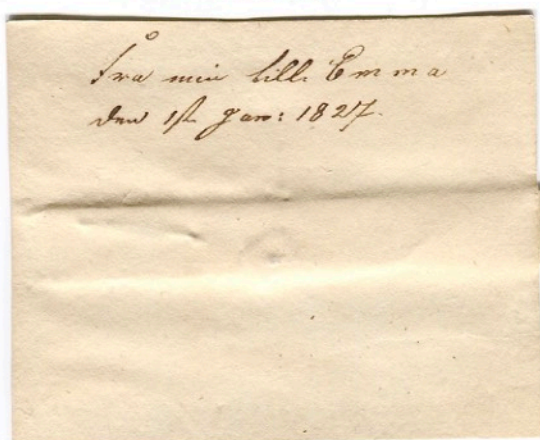 Fra min lille Emma
den 1ste Jan: 1827.